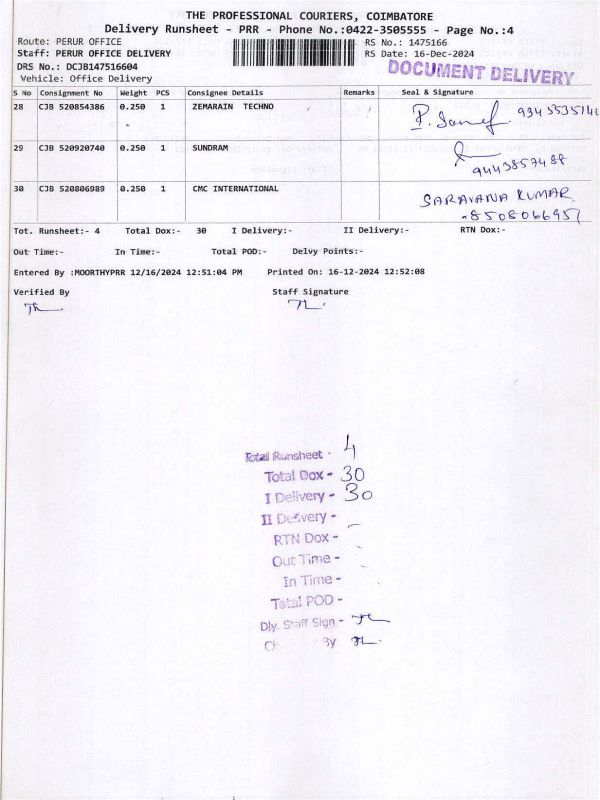 THE PROFESSIONAL COURIERS, COIMBATORE
Delivery Runsheet - PRR - Phone No.:0422-3505555 - Page No.:4
Route: PERUR OFFICE RS No.: 1475166
Staff: PERUR OFFICE DELIVERY RS Date: 16-Dec-2024
DRS No.: DCJB147516604 DOCUMENT DELIVERY
Vehicle: Office Delivery
S No Consignment No Weight PCS Consignee Details Remarks Seal & Signature
28 CJB 520854386 0.250 1 ZEMARAIN TECHNO
29 CJB 520920740 0.250 1 SUNDRAM
9443857488
30 CJB 520806989 0.250 1 CMC INTERNATIONAL SARAVANA KUMAR
8508066951
Tot. Runsheet:- 4 Total Dox:- 30 I Delivery:- II Delivery:- RTN Dox:-
Out Time:- In Time:- Total POD:- Delvy Points:-
Entered By :MOORTHYPRR 12/16/2024 12:51:04 PM Printed On: 16-12-2024 12:52:08
Verified By Staff Signature
Total Runsheet - 4
Total Dox - 30
I Delivery - 30
II Delivery -
RTN Dox -
Out Time -
In Time -
Total POD -
Dly. Staff Sign -
By